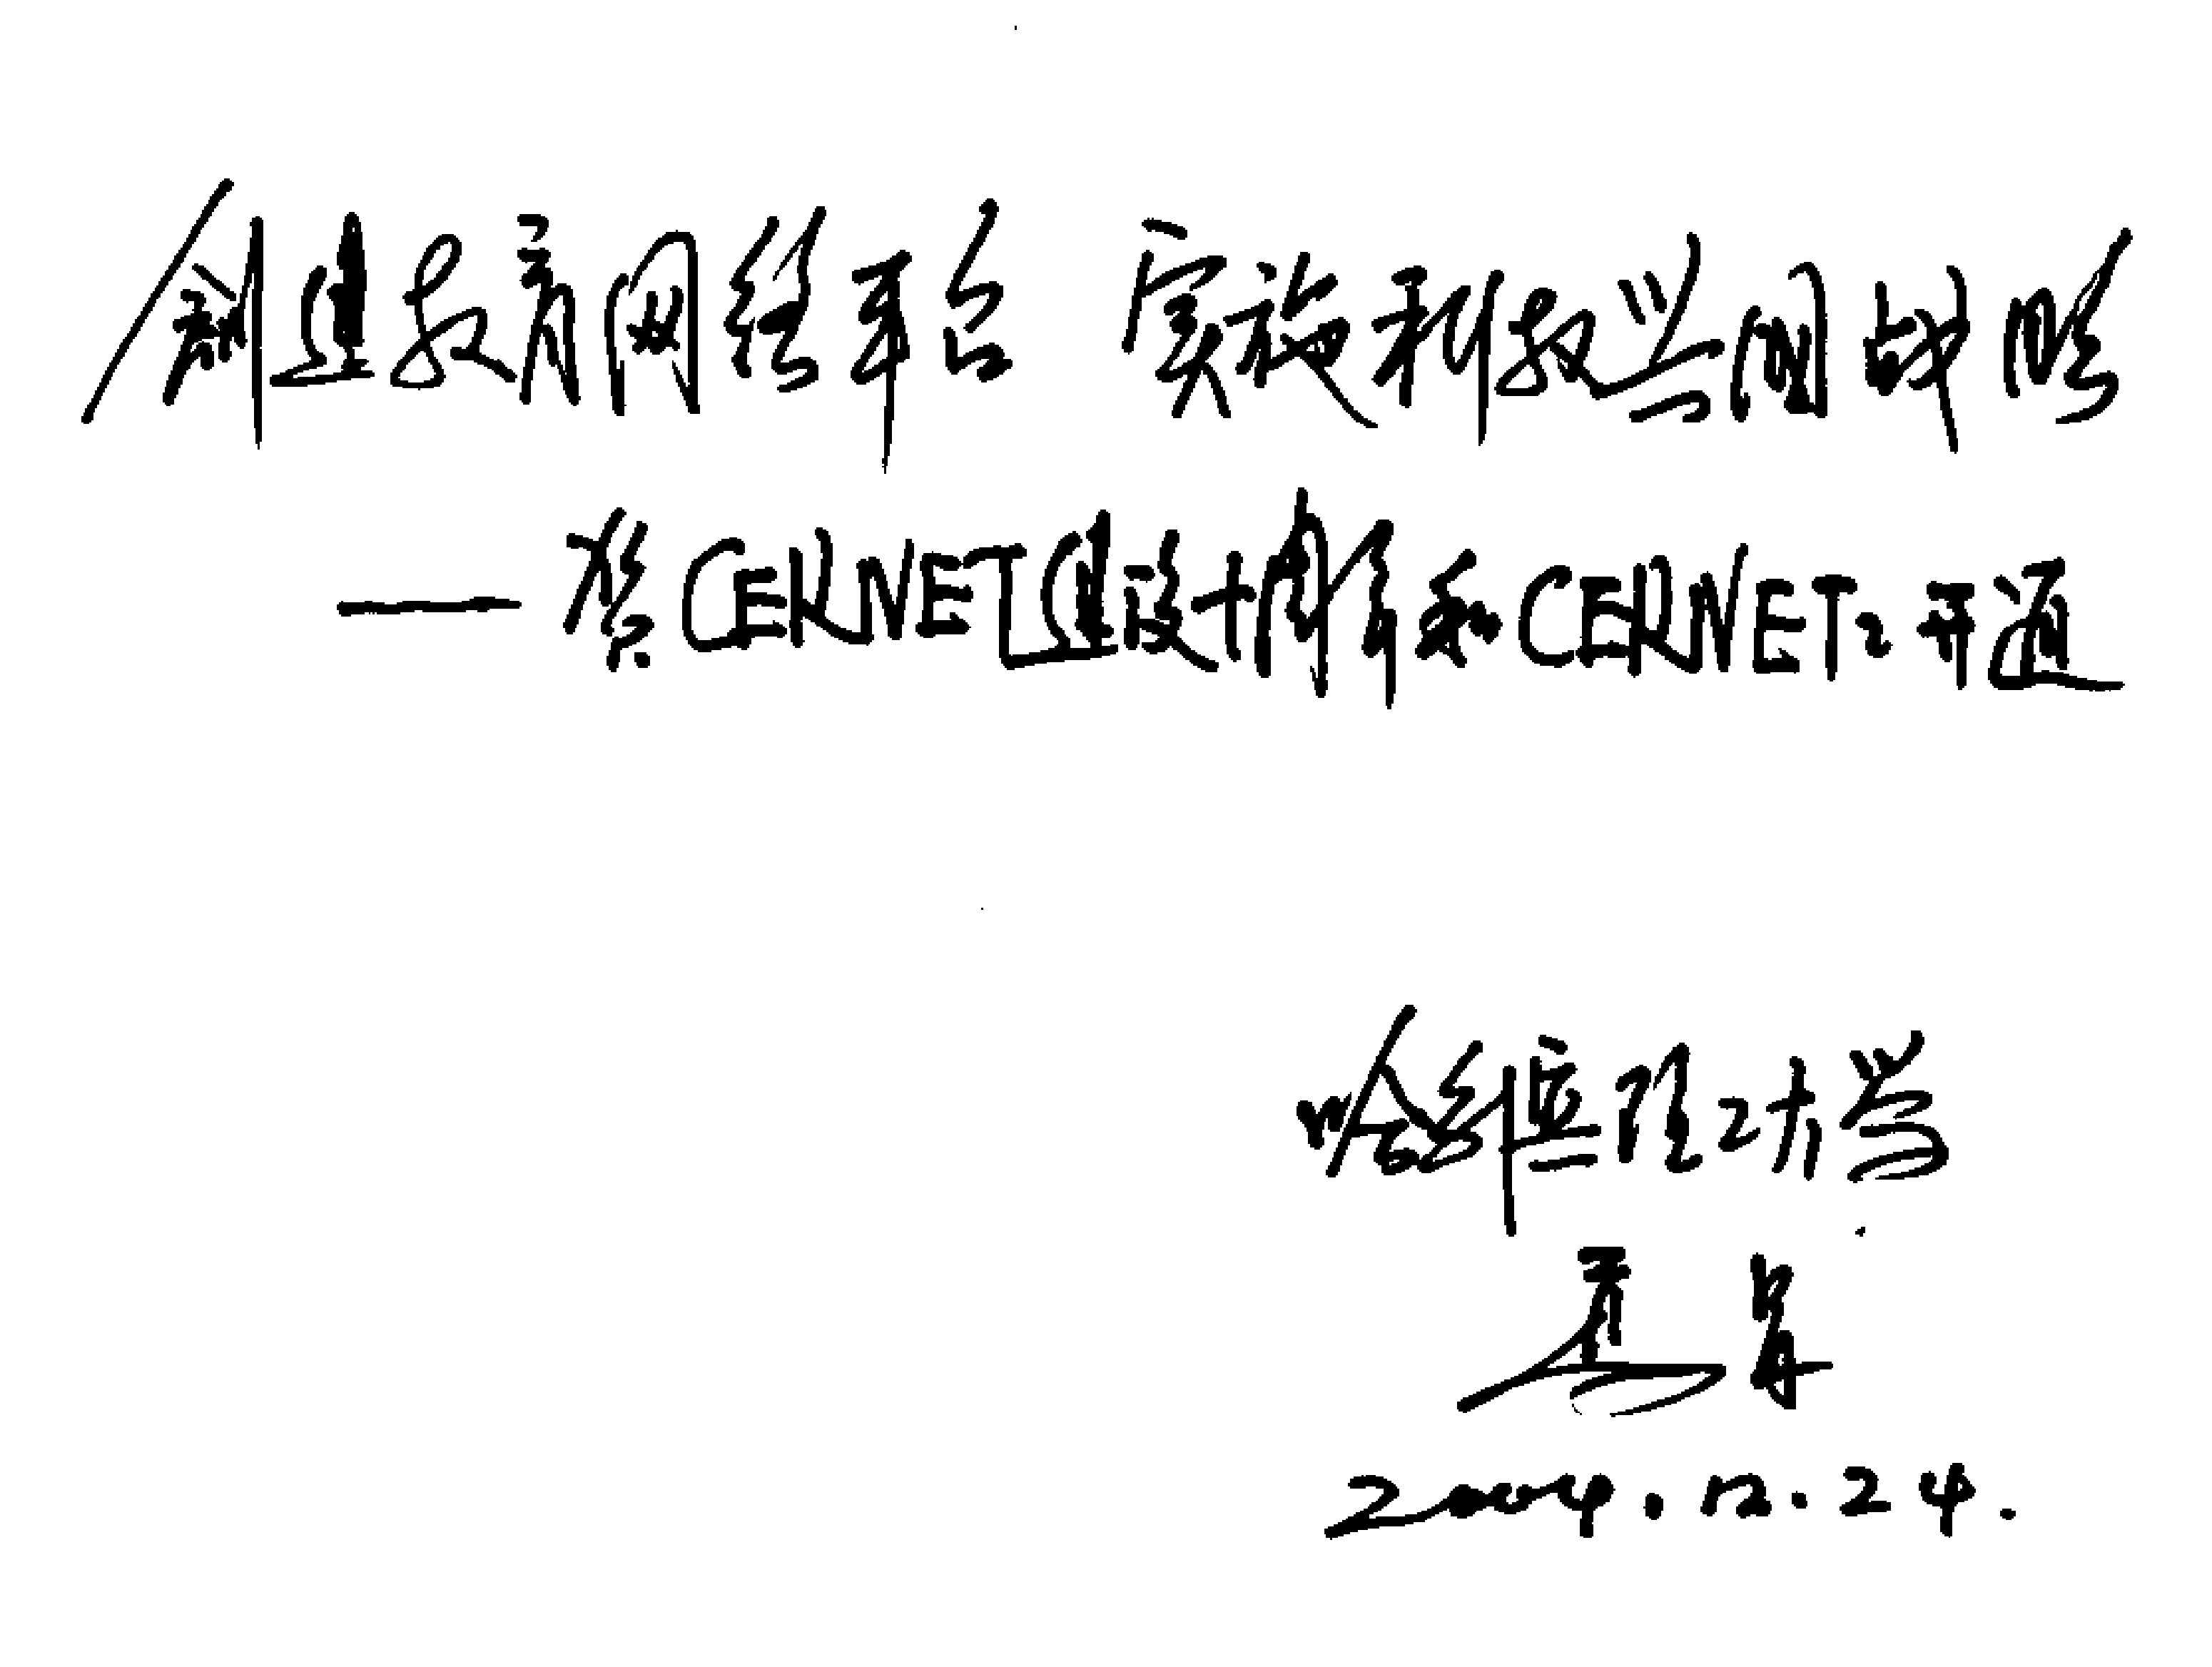 创建教育网络平台 实施科教兴国战略
——贺CERNET建设十周年和CERNET2开通
哈尔滨理工大学
2004.12.24.